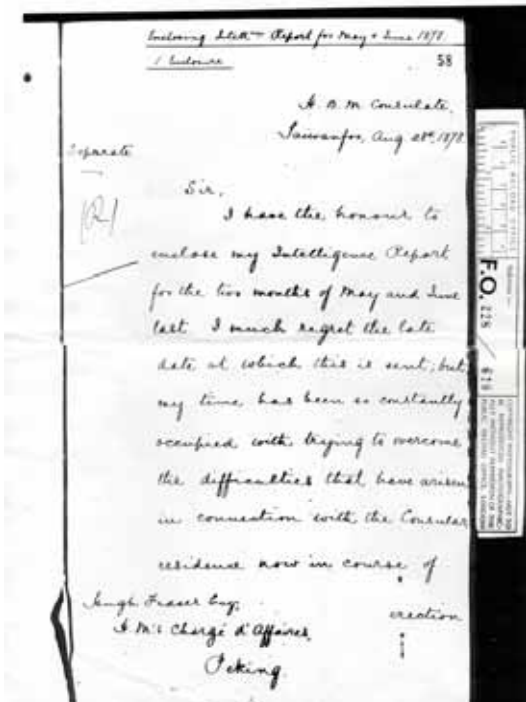 Enclosing Intell. Report for May & June 1878.
1 Enclosure
58
H. B. M Consulate,
Taiwanfoo, Aug 28th, 1878.
Separate
Sir,
I have the honour to
enclose my Intelligence Report
for the two months of May and June
last. I much regret the late
date at which this is sent; but
my time has been so constantly
occupied with trying to overcome
the difficulties that have arisen
in connection with the Consular
residence now in course of
erection
Hugh Fraser Esq,
H. M's Chargé d'Affaires,
Peking.
PUBLIC RECORD OFFICE
F.O. 228 / 616